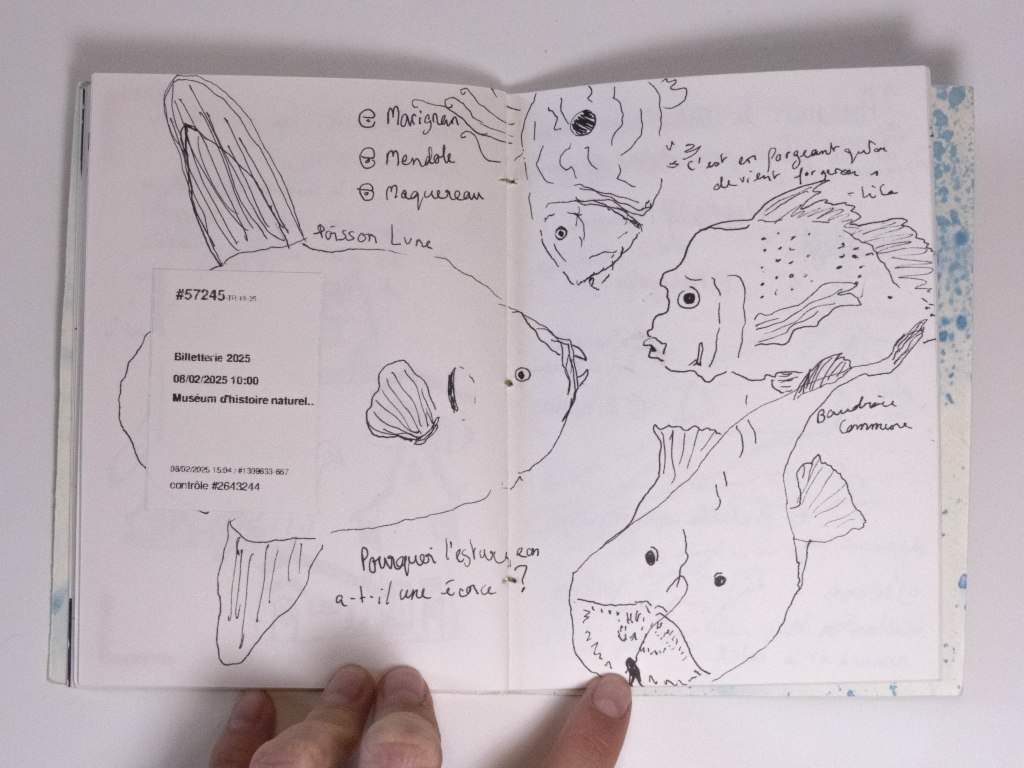 Marignan
Mendole
Maquereau
Poisson Lune
#57245
Billetterie 2025
08/02/2025 10:00
Muséum d'histoire naturel..
08/02/2025 15:04 / #1309633-667
contrôle #2643244
Pourquoi l'esturgeon
a-t-il une écorce ?
c'est en forgeant qu'on
devient forgeron
Baudroie
Commune